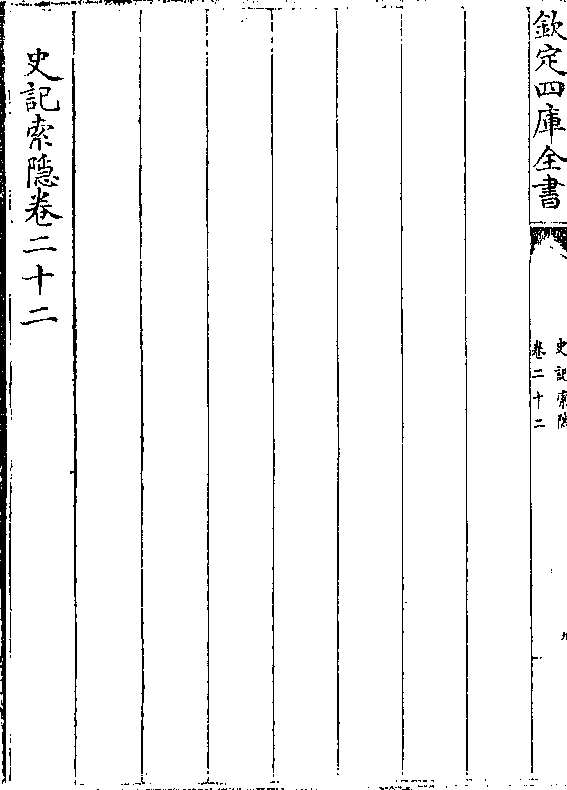 欽定四庫全書
史記索隱
卷二十二
史記索隱卷二十二